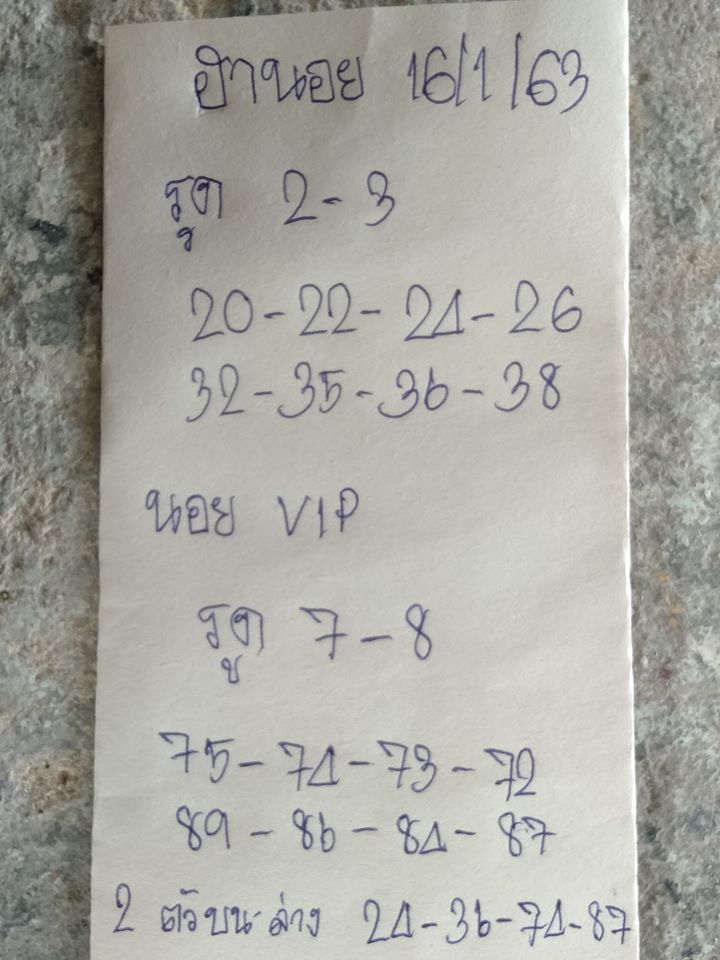 ฮานอย 16/1/63
รูด 2-3
20-22-24-26
32-35-36-38
นอย VIP
รูด 7-8
75-74-73-72
89-86-84-87
2 ตัวบน-ล่าง 24-36-74-87